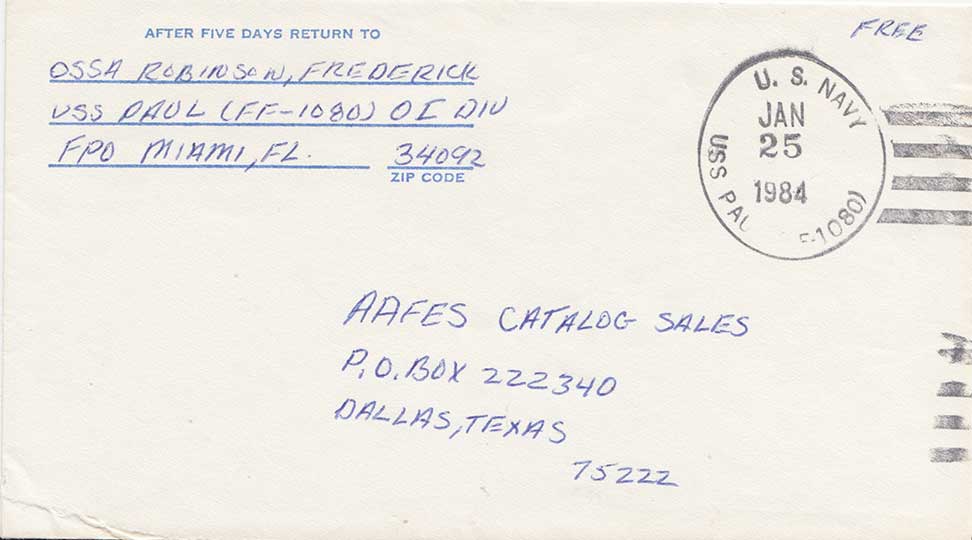 FREE
AFTER FIVE DAYS RETURN TO
OSSA ROBINSON, FREDERICK
USS PAUL (FF-1080) OI DIV
FPO MIAMI, FL. 34092
ZIP CODE
U. S. NAVY
JAN
25
1984
USS PAU F-1080)
AAFES CATALOG SALES
P.O. BOX 222340
DALLAS, TEXAS
75222